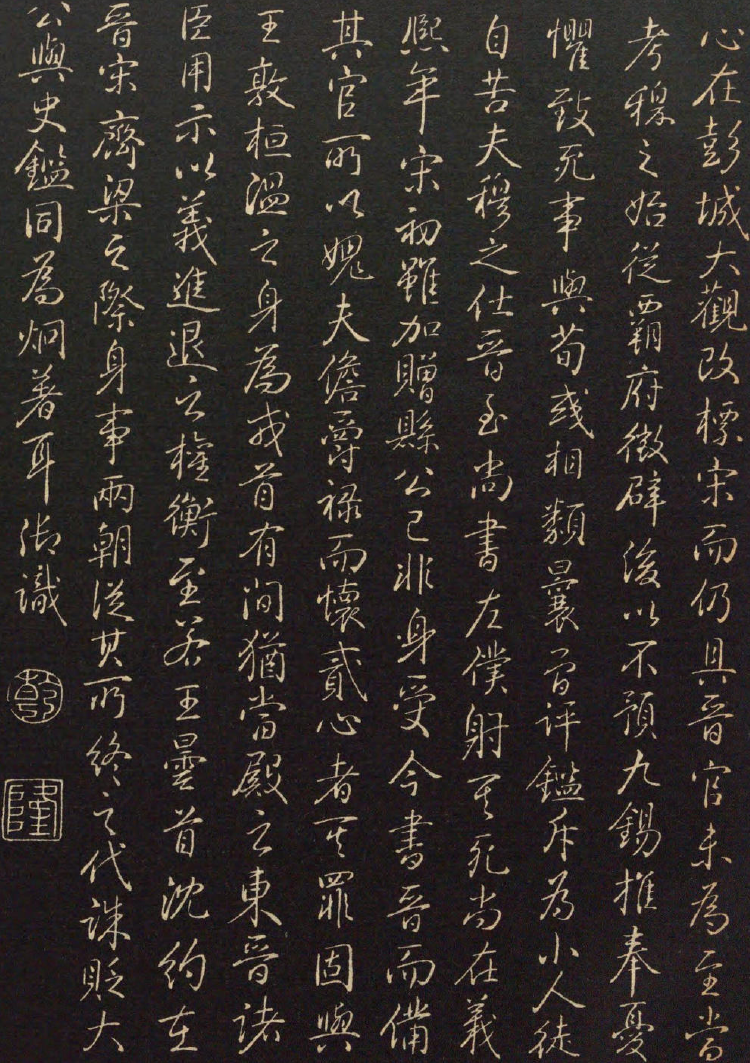 心在彭城大觀改標宋而仍具晉官未為至當
考穆之始從霸府徵辟後以不預九錫推奉憂
懼致死事與荀彧相類曩曾評鑑斥為小人徒
自苦夫穆之仕晉至尚書左僕射其死尚在義
熙年宋初雖加贈縣公已非身受今書晉而備
其官所以愧夫儋爵祿而懷貳心者其罪固與
王敦桓溫之身為戎首有間猶當殿之東晉諸
臣用示以義進退之權衡至若王曇首沈約在
晉宋齊梁之際身事兩朝從其所終之代誅貶大
公與史鑑同為炯著耳御識
乾
隆